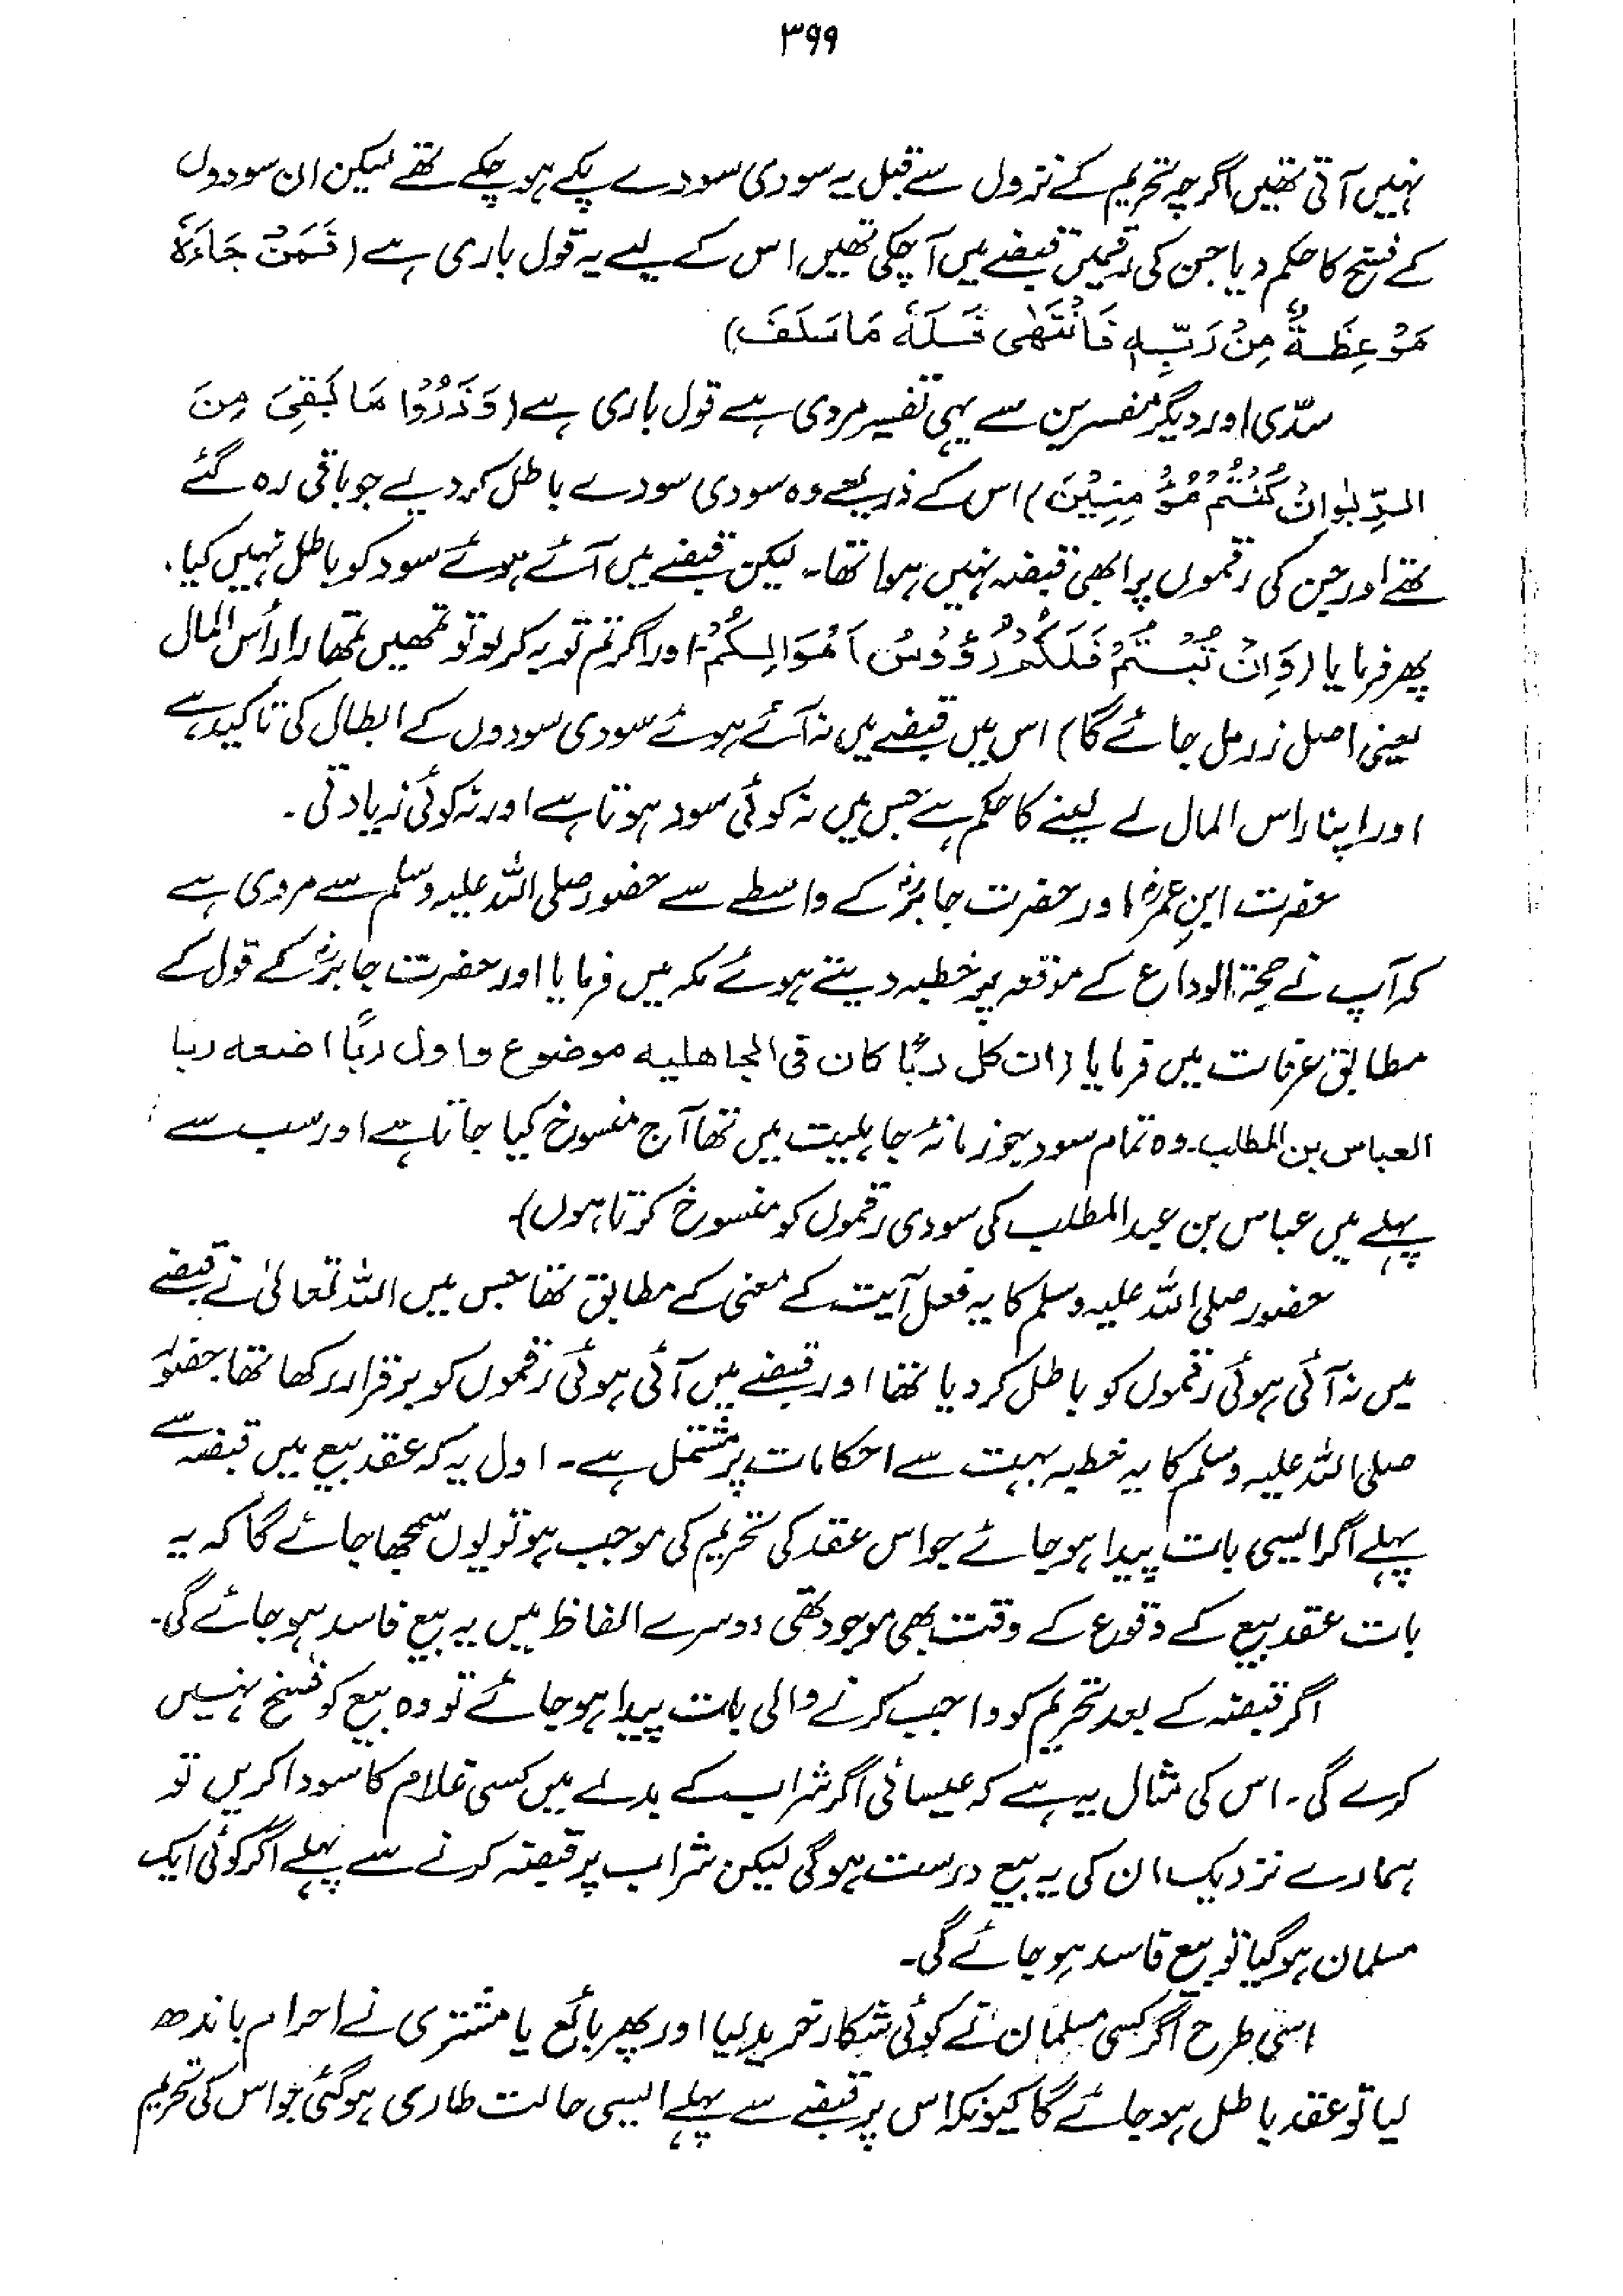 ۳۹۹
نہیں آتی تھیں اگرچہ تحریم کے نزول سے قبل یہ سودی سودے پکے ہو چکے تھے لیکن ان سودوں
کے فسخ کا حکم دیا جن کی رقمیں قبضے میں آچکی تھیں اس کے لیے یہ قول باری ہے (فَمَنْ جَاءَهٗ
مَوْعِظَةٌ مِنْ رَبِّهٖ فَانْتَهٰى فَلَهٗ مَا سَلَفَ)
سدّی اور دیگر مفسرین سے یہی تفسیر مروی ہے قول باری ہے (وَذَرُوْا مَا بَقِيَ مِنَ
الرِّبٰوا اِنْ كُنْتُمْ مُؤْمِنِيْنَ) اس کے ذریعے وہ سودی سودے باطل کر دیے جو باقی رہ گئے
تھے اور جن کی رقموں پر ابھی قبضہ نہیں ہوا تھا۔ لیکن قبضے میں آئے ہوئے سود کو باطل نہیں کیا۔
پھر فرمایا (وَاِنْ تُبْتُمْ فَلَكُمْ رُؤُوْسُ اَمْوَالِكُمْ، اور اگر تم توبہ کر لو تو تمھیں تمھارا رأس المال
یعنی اصل زر مل جائے گا) اس میں قبضے میں نہ آئے ہوئے سودی سودوں کے ابطال کی تاکید ہے
اور اپنا راس المال لے لینے کا حکم ہے جس میں نہ کوئی سود ہوتا ہے اور نہ کوئی زیادتی۔
حضرت ابنِ عمرؓ اور حضرت جابرؓ کے واسطے سے حضور صلی اللہ علیہ وسلم سے مروی ہے
کہ آپ نے حجۃ الوداع کے موقعہ پر خطبہ دیتے ہوئے مکہ میں فرمایا اور حضرت جابرؓ کے قول کے
مطابق عرفات میں فرمایا (ان کل ربًا کان فی الجاھلیہ موضوع واول ربًا اضعہ ربا
العباس بن المطلب۔ وہ تمام سود جو زمانۂ جاہلیت میں تھا آج منسوخ کیا جاتا ہے اور سب سے
پہلے میں عباس بن عبدالمطلب کی سودی رقموں کو منسوخ کرتا ہوں)۔
حضور صلی اللہ علیہ وسلم کا یہ فعل آیت کے معنی کے مطابق تھا جس میں اللہ تعالیٰ نے قبضے
میں نہ آئی ہوئی رقموں کو باطل کر دیا تھا اور قبضے میں آئی ہوئی رقموں کو برقرار رکھا تھا۔ حضور
صلی اللہ علیہ وسلم کا یہ خطبہ بہت سے احکامات پر مشتمل ہے۔ اول یہ کہ عقد بیع میں قبضہ سے
پہلے اگر ایسی بات پیدا ہو جائے جو اس عقد کی تحریم کی موجب ہو تو یوں سمجھا جائے گا کہ یہ
بات عقد بیع کے وقوع کے وقت بھی موجود تھی دوسرے الفاظ میں یہ بیع فاسد ہو جائے گی۔
اگر قبضہ کے بعد تحریم کو واجب کرنے والی بات پیدا ہو جائے تو وہ بیع کو فسخ نہیں
کرے گی۔ اس کی مثال یہ ہے کہ عیسائی اگر شراب کے بدلے میں کسی غلام کا سودا کریں تو
ہمارے نزدیک ان کی یہ بیع درست ہوگی لیکن شراب پر قبضہ کرنے سے پہلے اگر کوئی ایک
مسلمان ہو گیا تو بیع فاسد ہو جائے گی۔
اسی طرح اگر کسی مسلمان نے کوئی شکار خرید لیا اور پھر بائع یا مشتری نے احرام باندھ
لیا تو عقد باطل ہو جائے گا کیونکہ اس پر قبضے سے پہلے ایسی حالت طاری ہو گئی جو اس کی تحریم